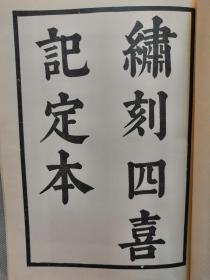 繡刻四喜
記定本